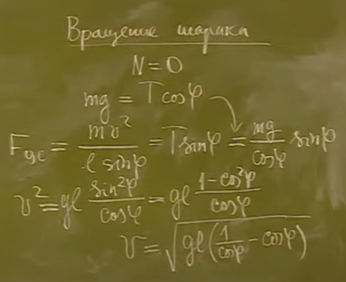 Вращение шарика
N = 0
mg = T cosφ
F_цс = mv² / (ℓ sinφ) = T sinφ = (mg / cosφ) sinφ
v² = gℓ (sin²φ / cosφ) = gℓ ((1 - cos²φ) / cosφ)
v = √(gℓ (1/cosφ - cosφ))